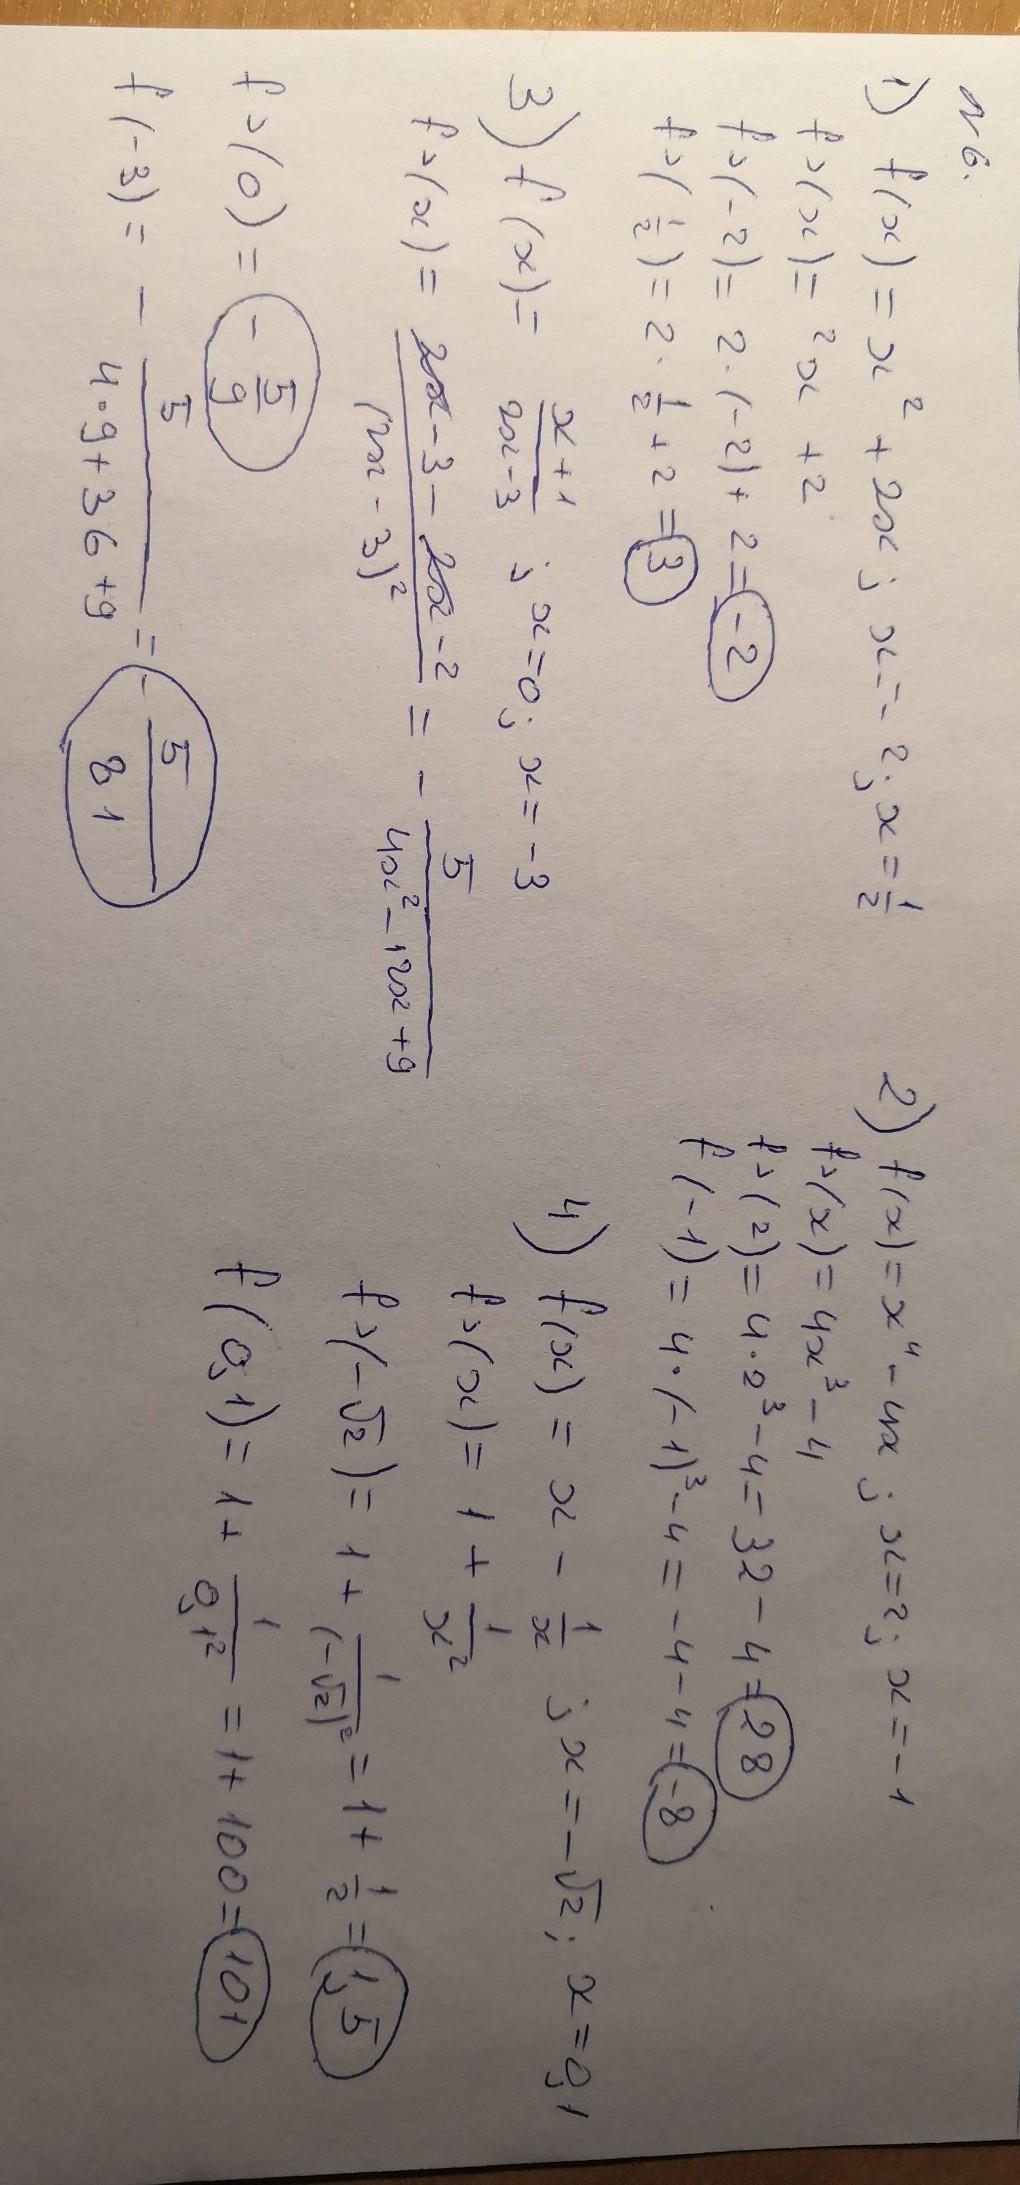 №6.
1) f(x) = x² + 2x; x = -2; x = 1/2
f'(x) = 2x + 2
f'(-2) = 2·(-2) + 2 = -2
f'(1/2) = 2·1/2 + 2 = 3
2) f(x) = x⁴ - 4x; x=2; x = -1
f'(x) = 4x³ - 4
f'(2) = 4·2³ - 4 = 32 - 4 = 28
f(-1) = 4·(-1)³ - 4 = -4 - 4 = -8
3) f(x) = (x+1)/(2x-3); x=0; x = -3
f'(x) = (2x - 3 - 2x - 2)/(2x - 3)² = - 5/(4x² - 12x + 9)
f'(0) = - 5/9
f(-3) = - 5/(4·9 + 36 + 9) = - 5/81
4) f(x) = x - 1/x; x = -√2; x = 0,1
f'(x) = 1 + 1/x²
f'(-√2) = 1 + 1/(-√2)² = 1 + 1/2 = 1,5
f(0,1) = 1 + 1/0,1² = 1 + 100 = 101